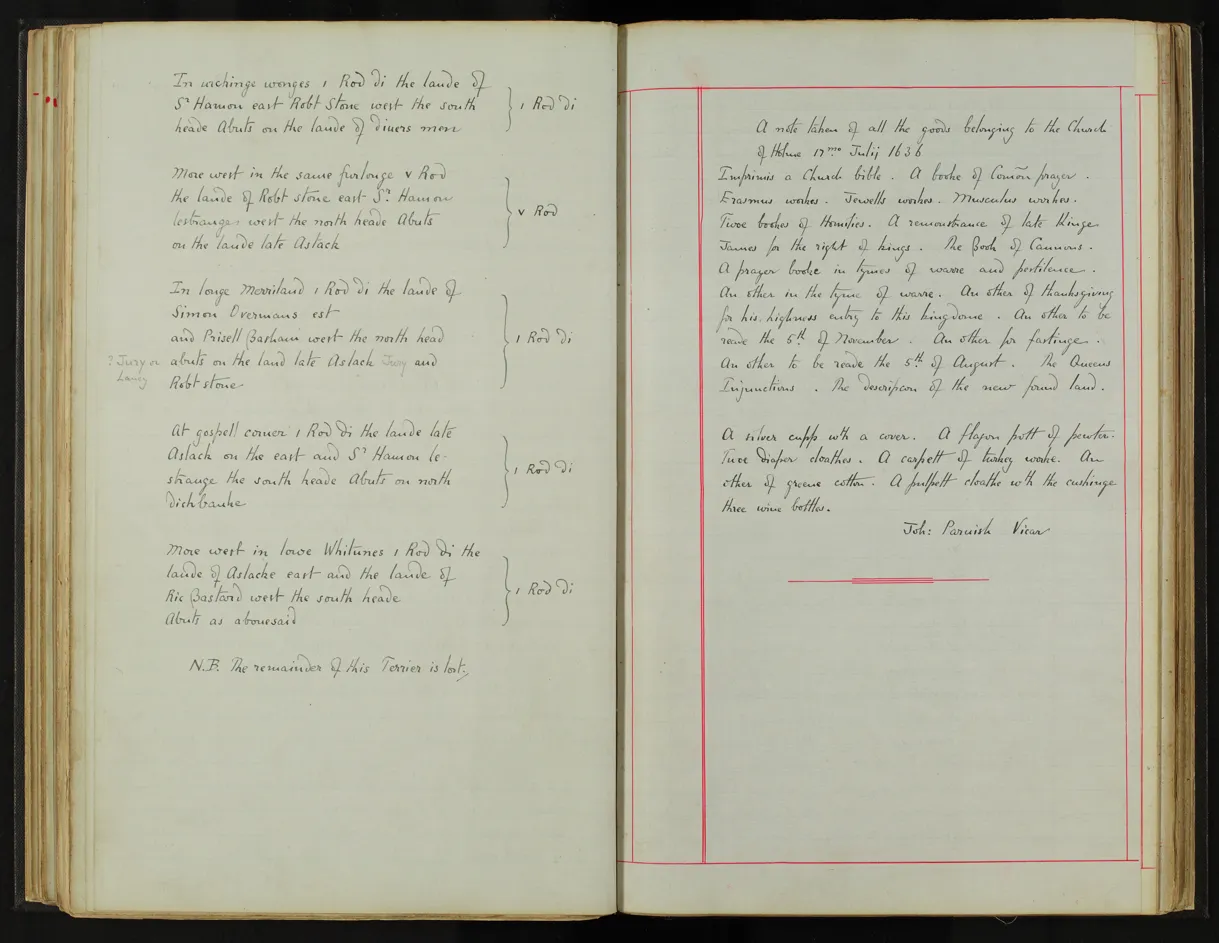 In wchinge wonges 1 Rod di the lande of
Sr Hamon east Robt Stone west the south } 1 Rod di
heade Abuts on the lande of diuers men
More west in the same furlonge v Rod
the lande of Robt stone east Sr. Hamon
lestranges west the north heade Abuts } v Rod
on the lande late Aslack
In longe Morriland 1 Rod di the lande of
Simon Overmans est
and Prisell Basham west the north head } 1 Rod di
? Jury or abuts on the land late Aslack and
Robt stone
At gospell corner 1 Rod di the lande late
Aslack on the east and Sr Hamon le- } 1 Rod di
strange the south heade Abuts on north
Dichbanke
More west in lowe Whitunes 1 Rod di the
lande of Aslacke east and the lande of } 1 Rod di
Ric Bastard west the south heade
Abuts as abouesaid
N.B. The remainder of this Terrier is lost.
A note taken of all the goods belonging to the Church
of Holme 17mo Julij 1636
Imprimis a Church bible. A booke of Comõn prayer.
Erasmus workes. Jewells workes. Musculus workes.
Twoe bookes of Homilies. A remonstrance of late Kinge
James for the right of kings. The Book of Cannons.
A prayer booke in tymes of warre and pestilence.
An other in the tyme of warre. An other of thanksgiving
for his highness entry to this kingdome. An other to be
reade the 5th of November. An other for fastinge.
An other to be reade the 5th of August. The Queens
Injunctions. The descripcon of the new found land.
A silver cupp wth a cover. A flagon pott of pewter.
Twoe diaper cloathes. A carpett of turkey worke. An
other of greene cotton. A pulpett cloathe wth the cushinge
three wine bottles.
Joh: Parnish Vicar